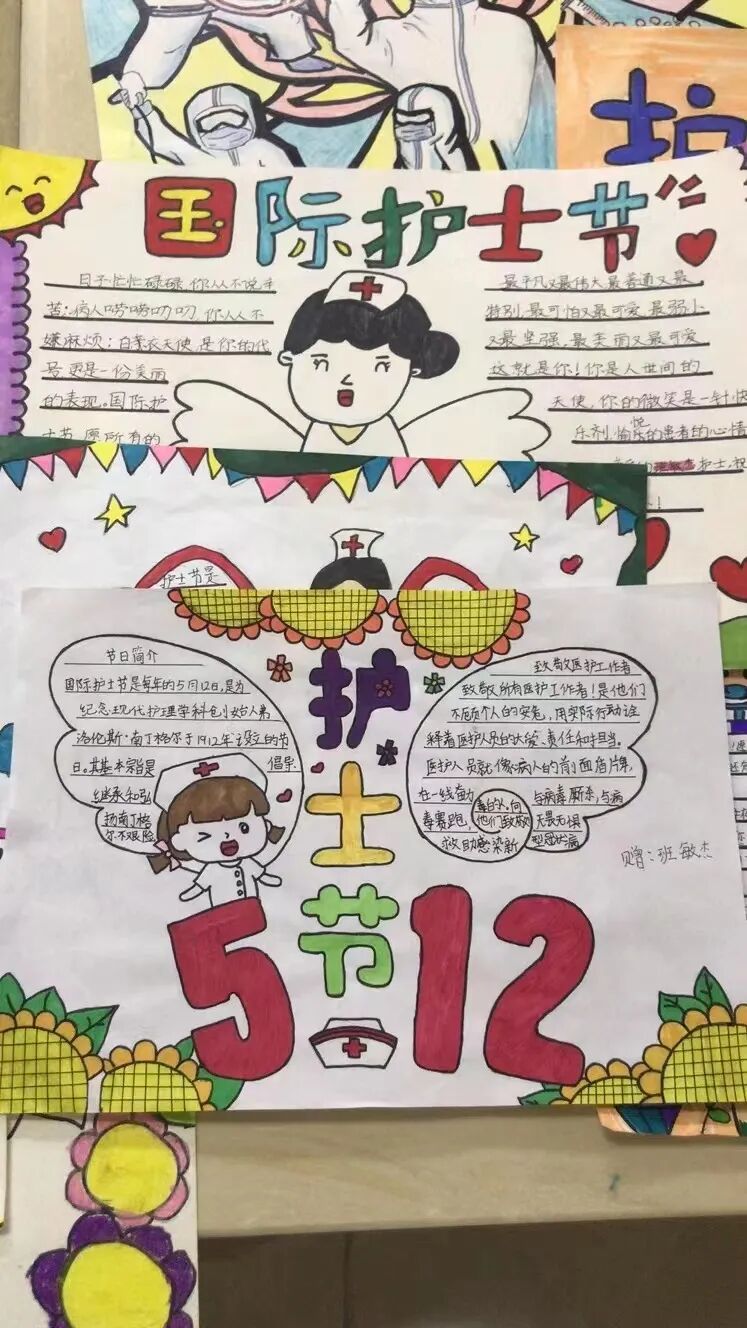 护
国际护士节
日子忙忙碌碌,你从不说辛
苦;病人唠唠叨叨,你从不
嫌麻烦;白素衣天使,是你的代
号,更是一份美丽
的表现。国际护
士节,愿所有的
最平凡又最伟大,最普通又最
特别,最可怕又最可爱,最弱小
又最坚强,最美丽又最可爱
这就是你!你是人世间的
天使,你的微笑是一针快
乐剂,愉悦的患者的心情
护士,祝
护士节是
节日简介
国际护士节是每年的5月12日,是为
纪念现代护理学科创始人弗
洛伦斯·南丁格尔于1912年设立的节
日。其基本宗旨是倡导、
继承和弘
扬南丁格
尔不艰险
护士节
5 12
致敬医护工作者
致敬所有医护工作者!是他们
不顾个人的安危,用实际行动诠
释着医护人员的大爱、责任和担当。
医护人员就像病人的前面盾牌,
在一线奋力与病毒厮杀,与病
毒赛跑,
他们致敬
天畏无惧
救助感染新型冠状病
赠:班敏杰